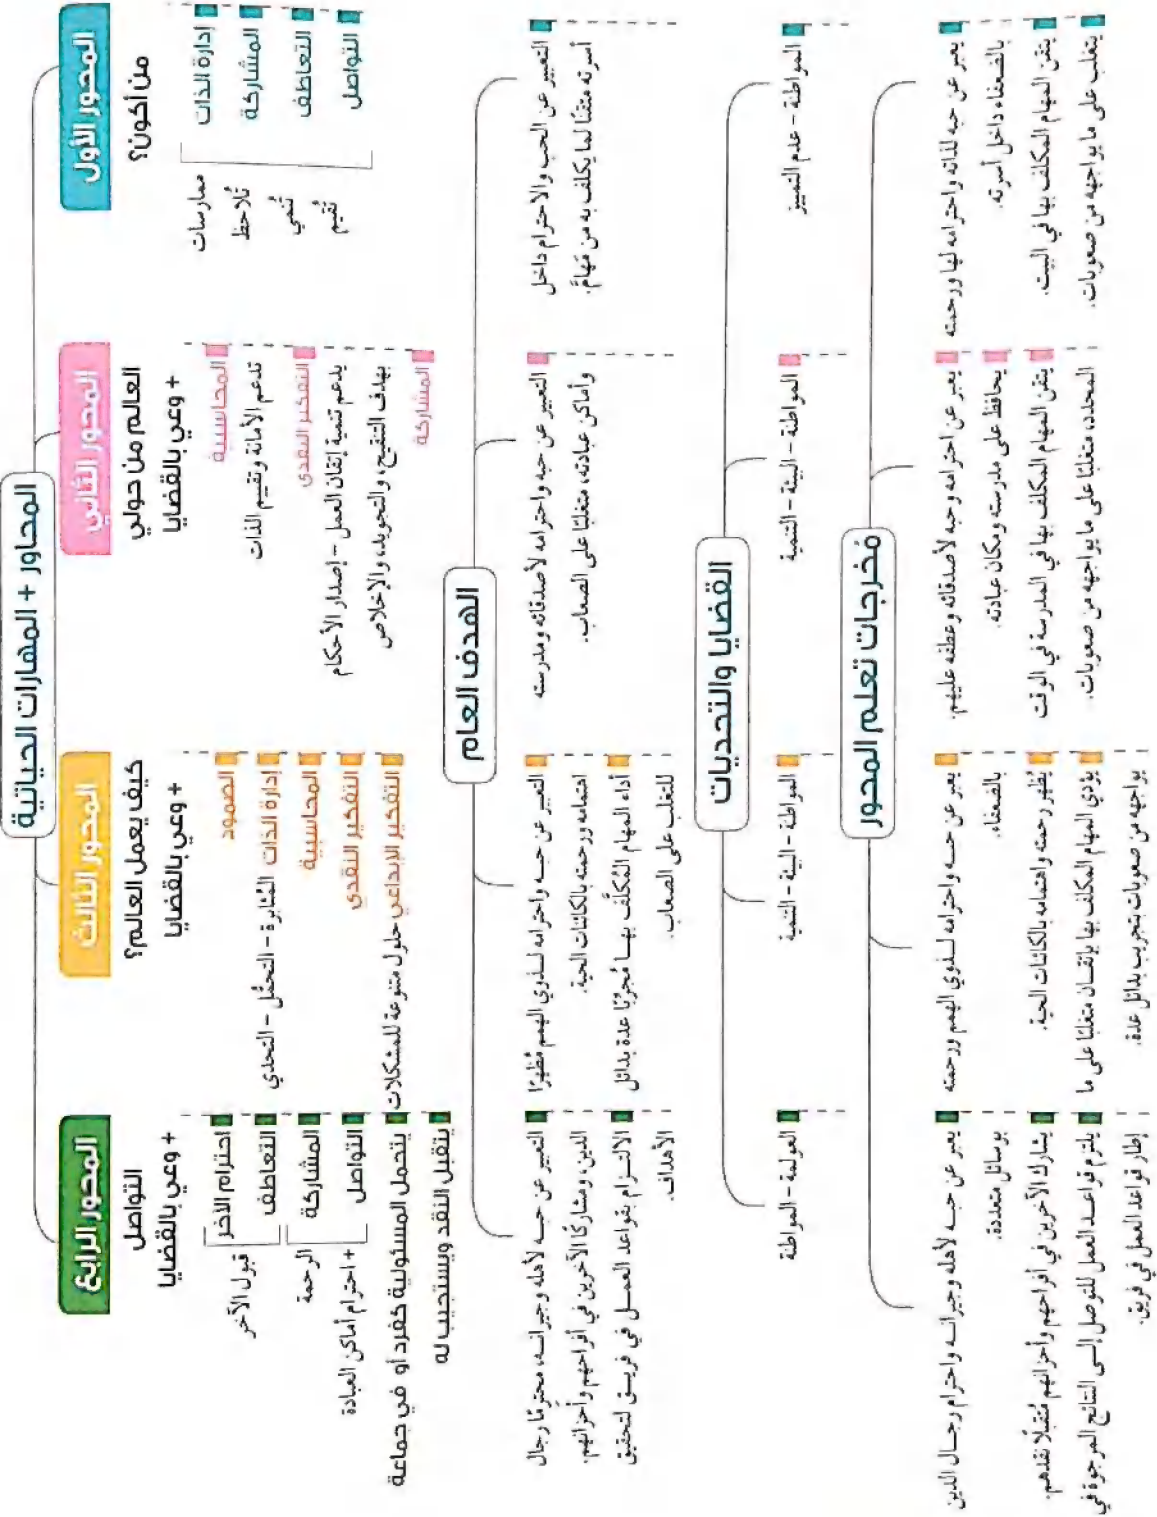 المحاور + المهارات الحياتية
المحور الأول
من أكون؟
إدارة الذات
المشاركة
التعاطف
التواصل
ممارسات
تُلاحظ
تُنمي
تُقيم
المحور الثاني
العالم من حولي
+ وعي بالقضايا
المحاسبية
تدعم الأمانة وتقييم الذات
التفكير النقدي
يدعم تنمية إتقان العمل - إصدار الأحكام
بهدف التنقيح، والتجويد، والإخلاص
المشاركة
المحور الثالث
كيف يعمل العالم؟
+ وعي بالقضايا
الصمود
إدارة الذات المُثابرة - التحمُّل - التحدي
المحاسبية
التفكير النقدي
التفكير الإبداعي حلول متنوعة للمشكلات
المحور الرابع
التواصل
+ وعي بالقضايا
احترام الآخر
التعاطف
قبول الآخر
المشاركة
التواصل
الرحمة
+ احترام أماكن العبادة
يتحمل المسئولية كفرد أو في جماعة
يتقبل النقد ويستجيب له
الهدف العام
التعبير عن الحب والاحترام داخل
أسرته متقنًا لما يكلف به من مَهامَّ.
التعبير عن حبه واحترامه لأصدقائه ومدرسته
وأماكن عبادته، متغلبًا على الصعاب.
التعبير عن حبه واحترامه لـذوي الهمم مُظهِرًا
اهتمامه ورحمته بالكائنات الحية.
أداء المهام المُكلَّف بهـا مُجرِّبًا عدة بدائل
للتغلب على الصعاب.
التعبير عن حبـه لأهله وجيرانـه، محترمًا رجال
الدين، ومشاركًا الآخرين في أفراحهم وأحزانهم.
الالتـزام بقواعد العمـل في فريـق لتحقيق
الأهداف.
القضايا والتحديات
المواطنة - عدم التمييز
المواطنة - البيئة - التنمية
المواطنة - البيئة - التنمية
العولمة - المواطنة
مُخرجات تعلم المحور
يعبر عن حبه لذاته واحترامه لها ورحمته
بالضعفاء داخل أسرته.
يتقن المهام المكلف بها في البيت.
يتغلب على ما يواجهه من صعوبات.
يعبر عن احترامه وحبه لأصدقائه وعطفه عليهم.
يحافظ على مدرسته ومكان عبادته.
يتقن المهام المكلف بها في المدرسة في الوقت
المحدد، متغلبًا على ما يواجهه من صعوبات.
يعبر عن حبـه واحترامه لـذوي الهمم ورحمته
بالضعفاء.
يُظهر رحمته واهتمامه بالكائنات الحية.
يؤدي المهام المكلف بها بإتقـان متغلبًا على ما
يواجهه من صعوبات بتجريب بدائل عدة.
يعبر عن حبـه لأهله وجيرانـه واحترام رجـال الدين
بوسائل متعددة.
يشارك الآخرين في أفراحهم وأحزانهم مُتقبلًا نقدهم.
يلتزم قواعـد العمل للتوصل إلـى النتائج المرجوة في
إطار قواعد العمل في فريق.